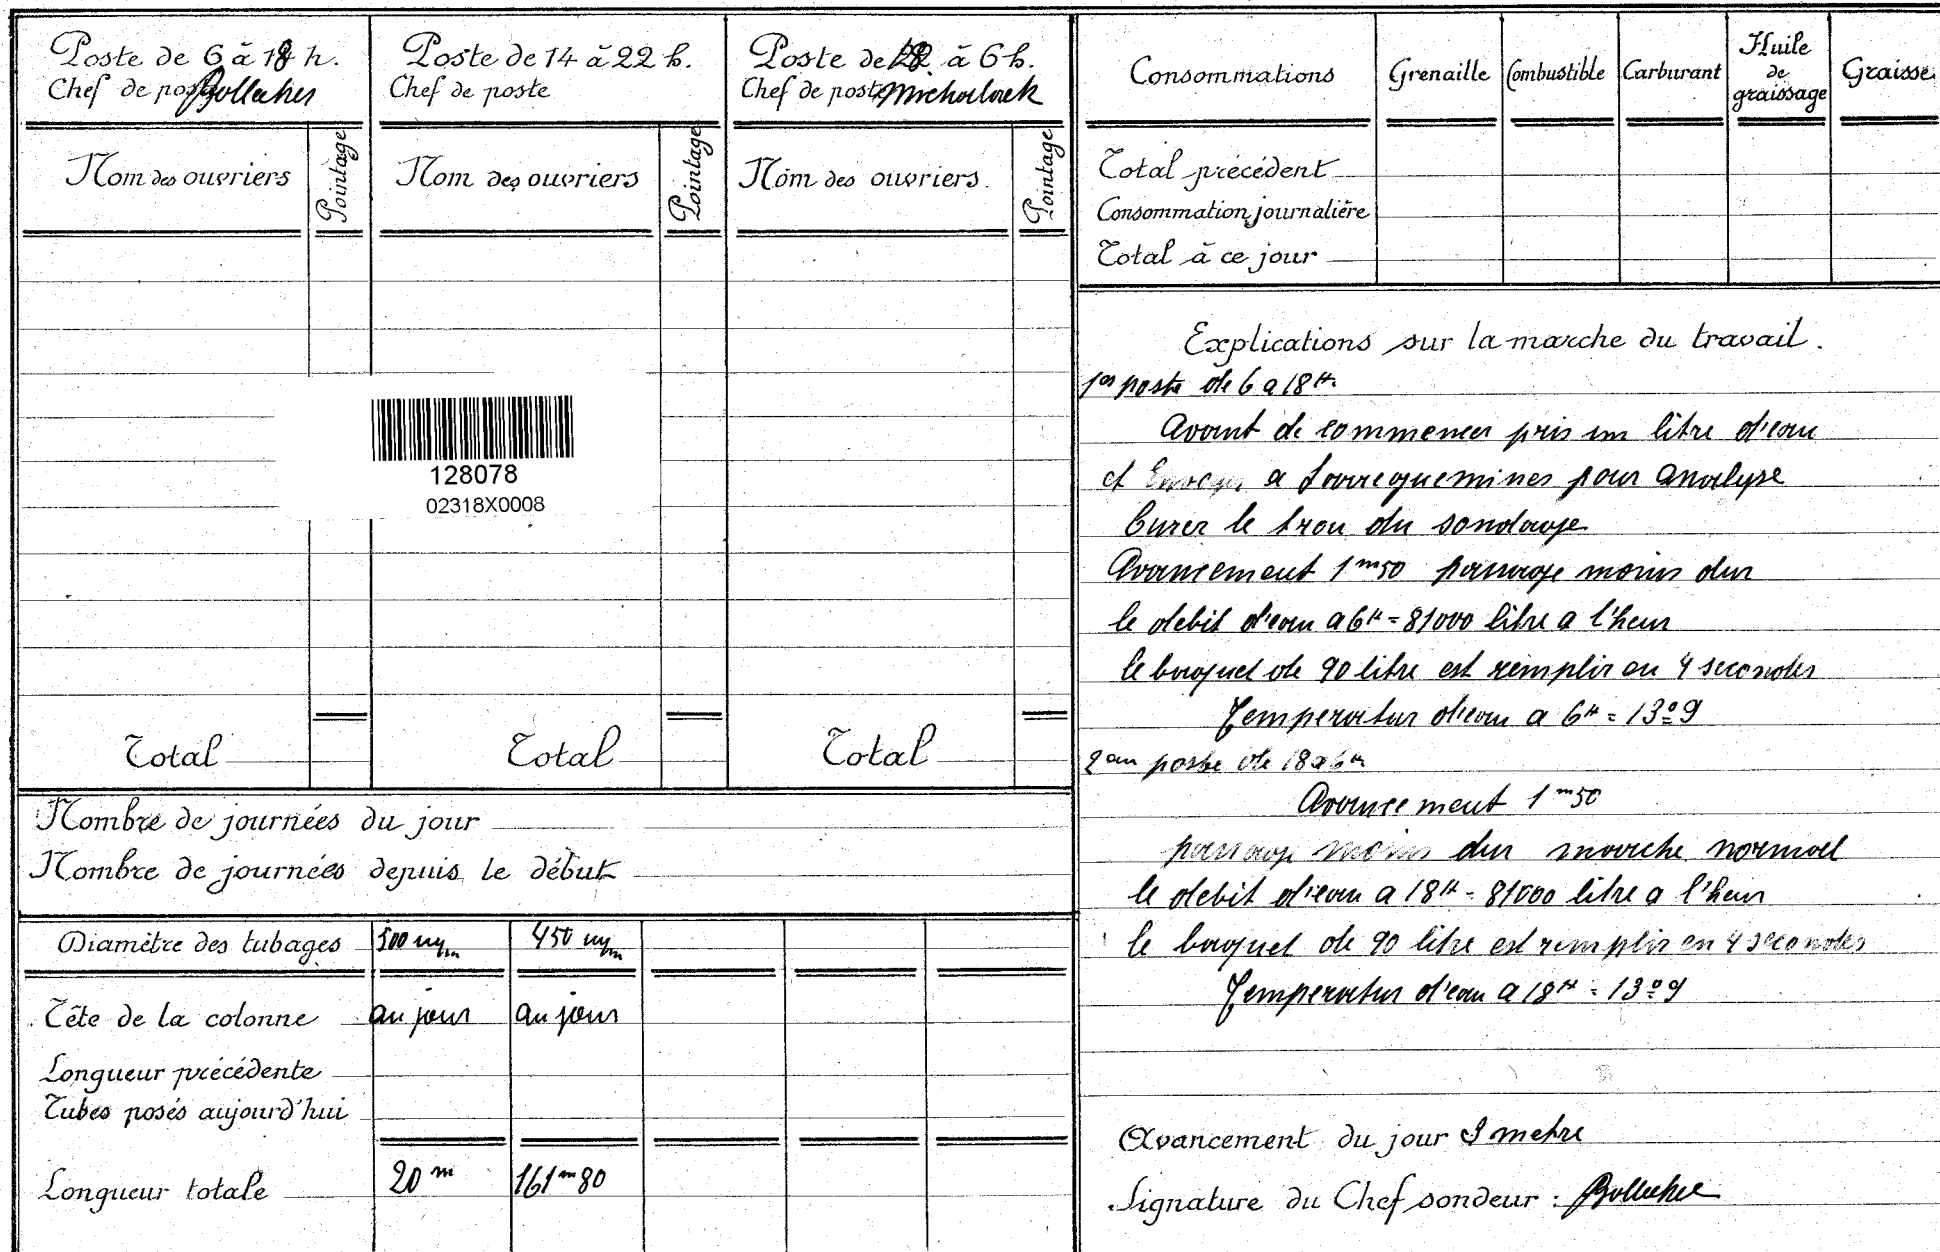 Poste de 6 à 18 h.
Chef de poste Bollecker
Poste de 14 à 22 h.
Chef de poste
Poste de 18 à 6 h.
Chef de poste
Nom des ouvriers
Pointage
Nom des ouvriers
Pointage
Nom des ouvriers.
Pointage
128078
02318X0008
Total
Total
Total
Nombre de journées du jour
Nombre de journées depuis le début
Diamètre des tubages 500 m/m 450 m/m
Tête de la colonne au jour au jour
Longueur précédente
Tubes posés aujourd'hui
Longueur totale 20 m 161 m 80
Consommations
Grenaille
Combustible
Carburant
Huile
de
graissage
Graisse
Total précédent
Consommation journalière
Total à ce jour
Explications sur la marche du travail.
1er poste de 6 a 18 H.
Avant de commencer pris un litre d'eau
et a Sarreguemines pour analyse
Curer le trou du sondage
Avancement 1 m 50 passage moins dur
le debit d'eau a 6 H = 81000 litre a l'heur
le baquet de 90 litre est remplir en 4 secondes
Temperatur d'eau a 6 H = 13° 9
2em poste de 18 a 6 H
Avancement 1 m 50
passage moins dur marche normal
le debit d'eau a 18 H = 81000 litre a l'heur
le baquet de 90 litre est remplir en 4 secondes
Temperatur d'eau a 18 H = 13° 9
Avancement du jour 3 metre
Signature du Chef sondeur : Bollecker